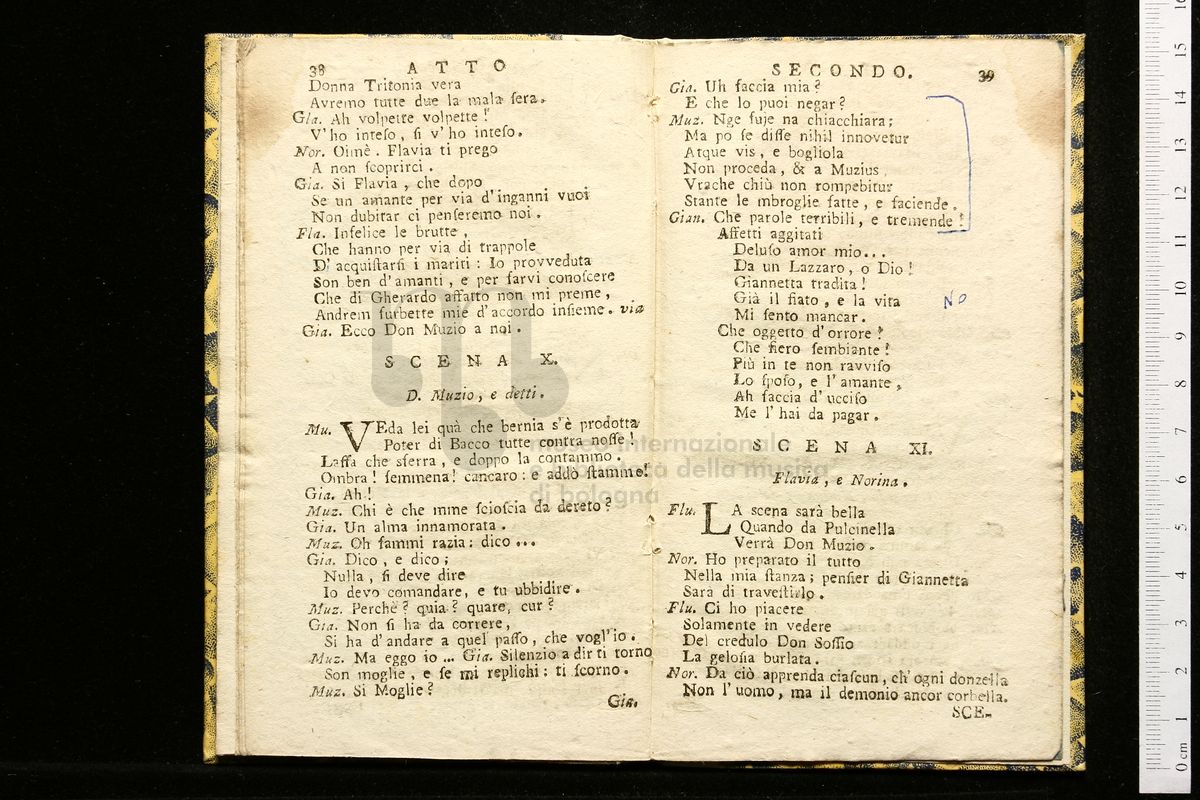 38 ATTO
Donna Tritonia vera
Avremo tutte due la mala ſera.
Gia. Ah volpette volpette!
V'ho inteſo, ſi v'ho inteſo.
Nor. Oimè. Flavia ti prego
A non ſcoprirci.
Gia. Si Flavia, che dopo
Se un amante per via d'inganni vuoi
Non dubitar ci penſeremo noi.
Fla. Infelice le brutte,
Che hanno per via di trappole
D'acquiſtarſi i mariti: Io provveduta
Son ben d'amanti, e per farvi conoſcere
Che di Gherardo affatto non mi preme,
Andrem furbette mie d'accordo inſieme. via
Gia. Ecco Don Muzio a noi.
SCENA X.
D. Muzio, e detti.
Mu. VEda lei quà che bernia s'è prodotta
Poter di Bacco tutte contra noſſe!
Laſſa che sferra, e doppo la contammo.
Ombra! femmena! cancaro: e addò ſtammo!
Gia. Ah!
Muz. Chi è che mme ſcioſcia da dereto?
Gia. Un alma innamorata.
Muz. Oh fammi razia: dico ...
Gia. Dico, e dico;
Nulla, ſi deve dire
Io devo comandare, e tu ubbidire.
Muz. Perchè? quia? quare, cur?
Gia. Non ſi ha da correre,
Si ha d'andare a quel paſſo, che vogl'io.
Muz. Ma eggo io ... Gia. Silenzio a dir ti torno
Son moglie, e ſe mi replichi: ti ſcorno.
Muz. Si Moglie?
Gia.
SECONDO. 39
Gia. Uh faccia mia?
E che lo puoi negar?
Muz. Nge fuje na chiacchiara;
Ma po ſe diſſe nihil innovetur
Atque vis, e bogliola
Non proceda, & a Muzius
Vrache chiù non rompebitur
Stante le mbroglie fatte, e faciende.
Gian. Che parole terribili, e tremende!
Affetti aggitati
Deluſo amor mio...
Da un Lazzaro, o Dio!
Giannetta tradita!
Già il fiato, e la vita
Mi ſento mancar.
Che oggetto d'orrore!
Che fiero ſembiante!
Più in te non ravviſo
Lo ſpoſo, e l'amante,
Ah faccia d'ucciſo
Me l'hai da pagar.
NO
SCENA XI.
Flavia, e Norina.
Flu. LA scena sarà bella
Quando da Pulcinella
Verrà Don Muzio.
Nor. Ho preparato il tutto
Nella mia ſtanza; penſier di Giannetta
Sarà di traveſtirlo.
Flu. Ci ho piacere
Solamente in vedere
Del credulo Don Soſſio
La geloſia burlata.
Nor. Da ciò apprenda ciaſcun, ch'ogni donzella
Non l'uomo, ma il demonio ancor corbella.
SCE-
museo internazionale
e biblioteca della musica
di bologna
0 cm 1 2 3 4 5 6 7 8 9 10 11 12 13 14 15 16